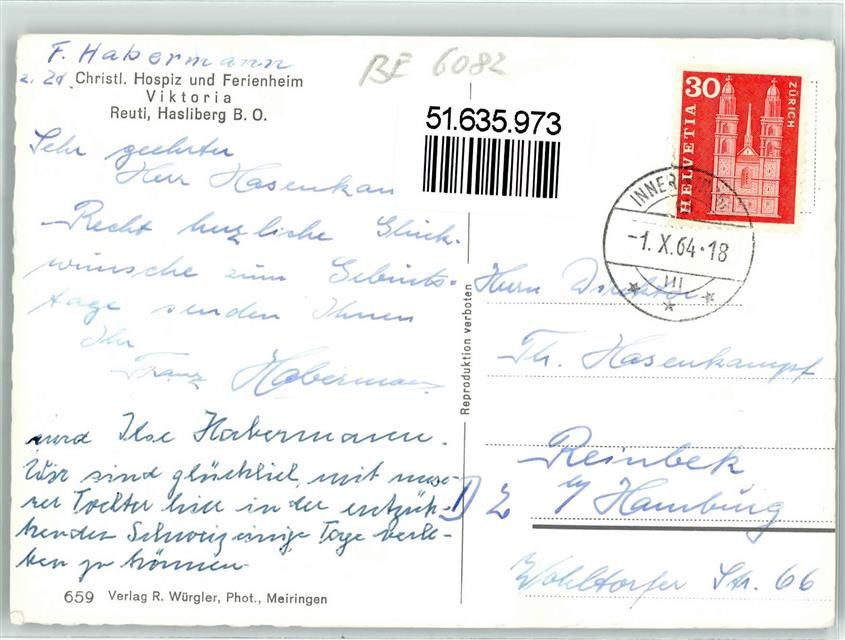 F. Habermann
z. Zt. Christl. Hospiz und Ferienheim
Viktoria
Reuti, Hasliberg B. O.
BE 6082
51.635.973
30
HELVETIA
ZÜRICH
-1.X.64·18
III
Sehr geehrter
Herr Hasenkam
Recht herzliche Glück-
wünsche zum Geburts-
tage senden Ihnen
Ihr
Franz Habermann
und Ilse Habermann.
Wir sind glücklich, mit unse-
rer Tochter hier in der entzük-
kenden Schweiz einige Tage verle-
ben zu können.
Reproduktion verboten
Herrn Direktor
Th. Hasenkampf
Reinbek
by Hamburg
Wohltorfer Str. 66
659 Verlag R. Würgler, Phot., Meiringen